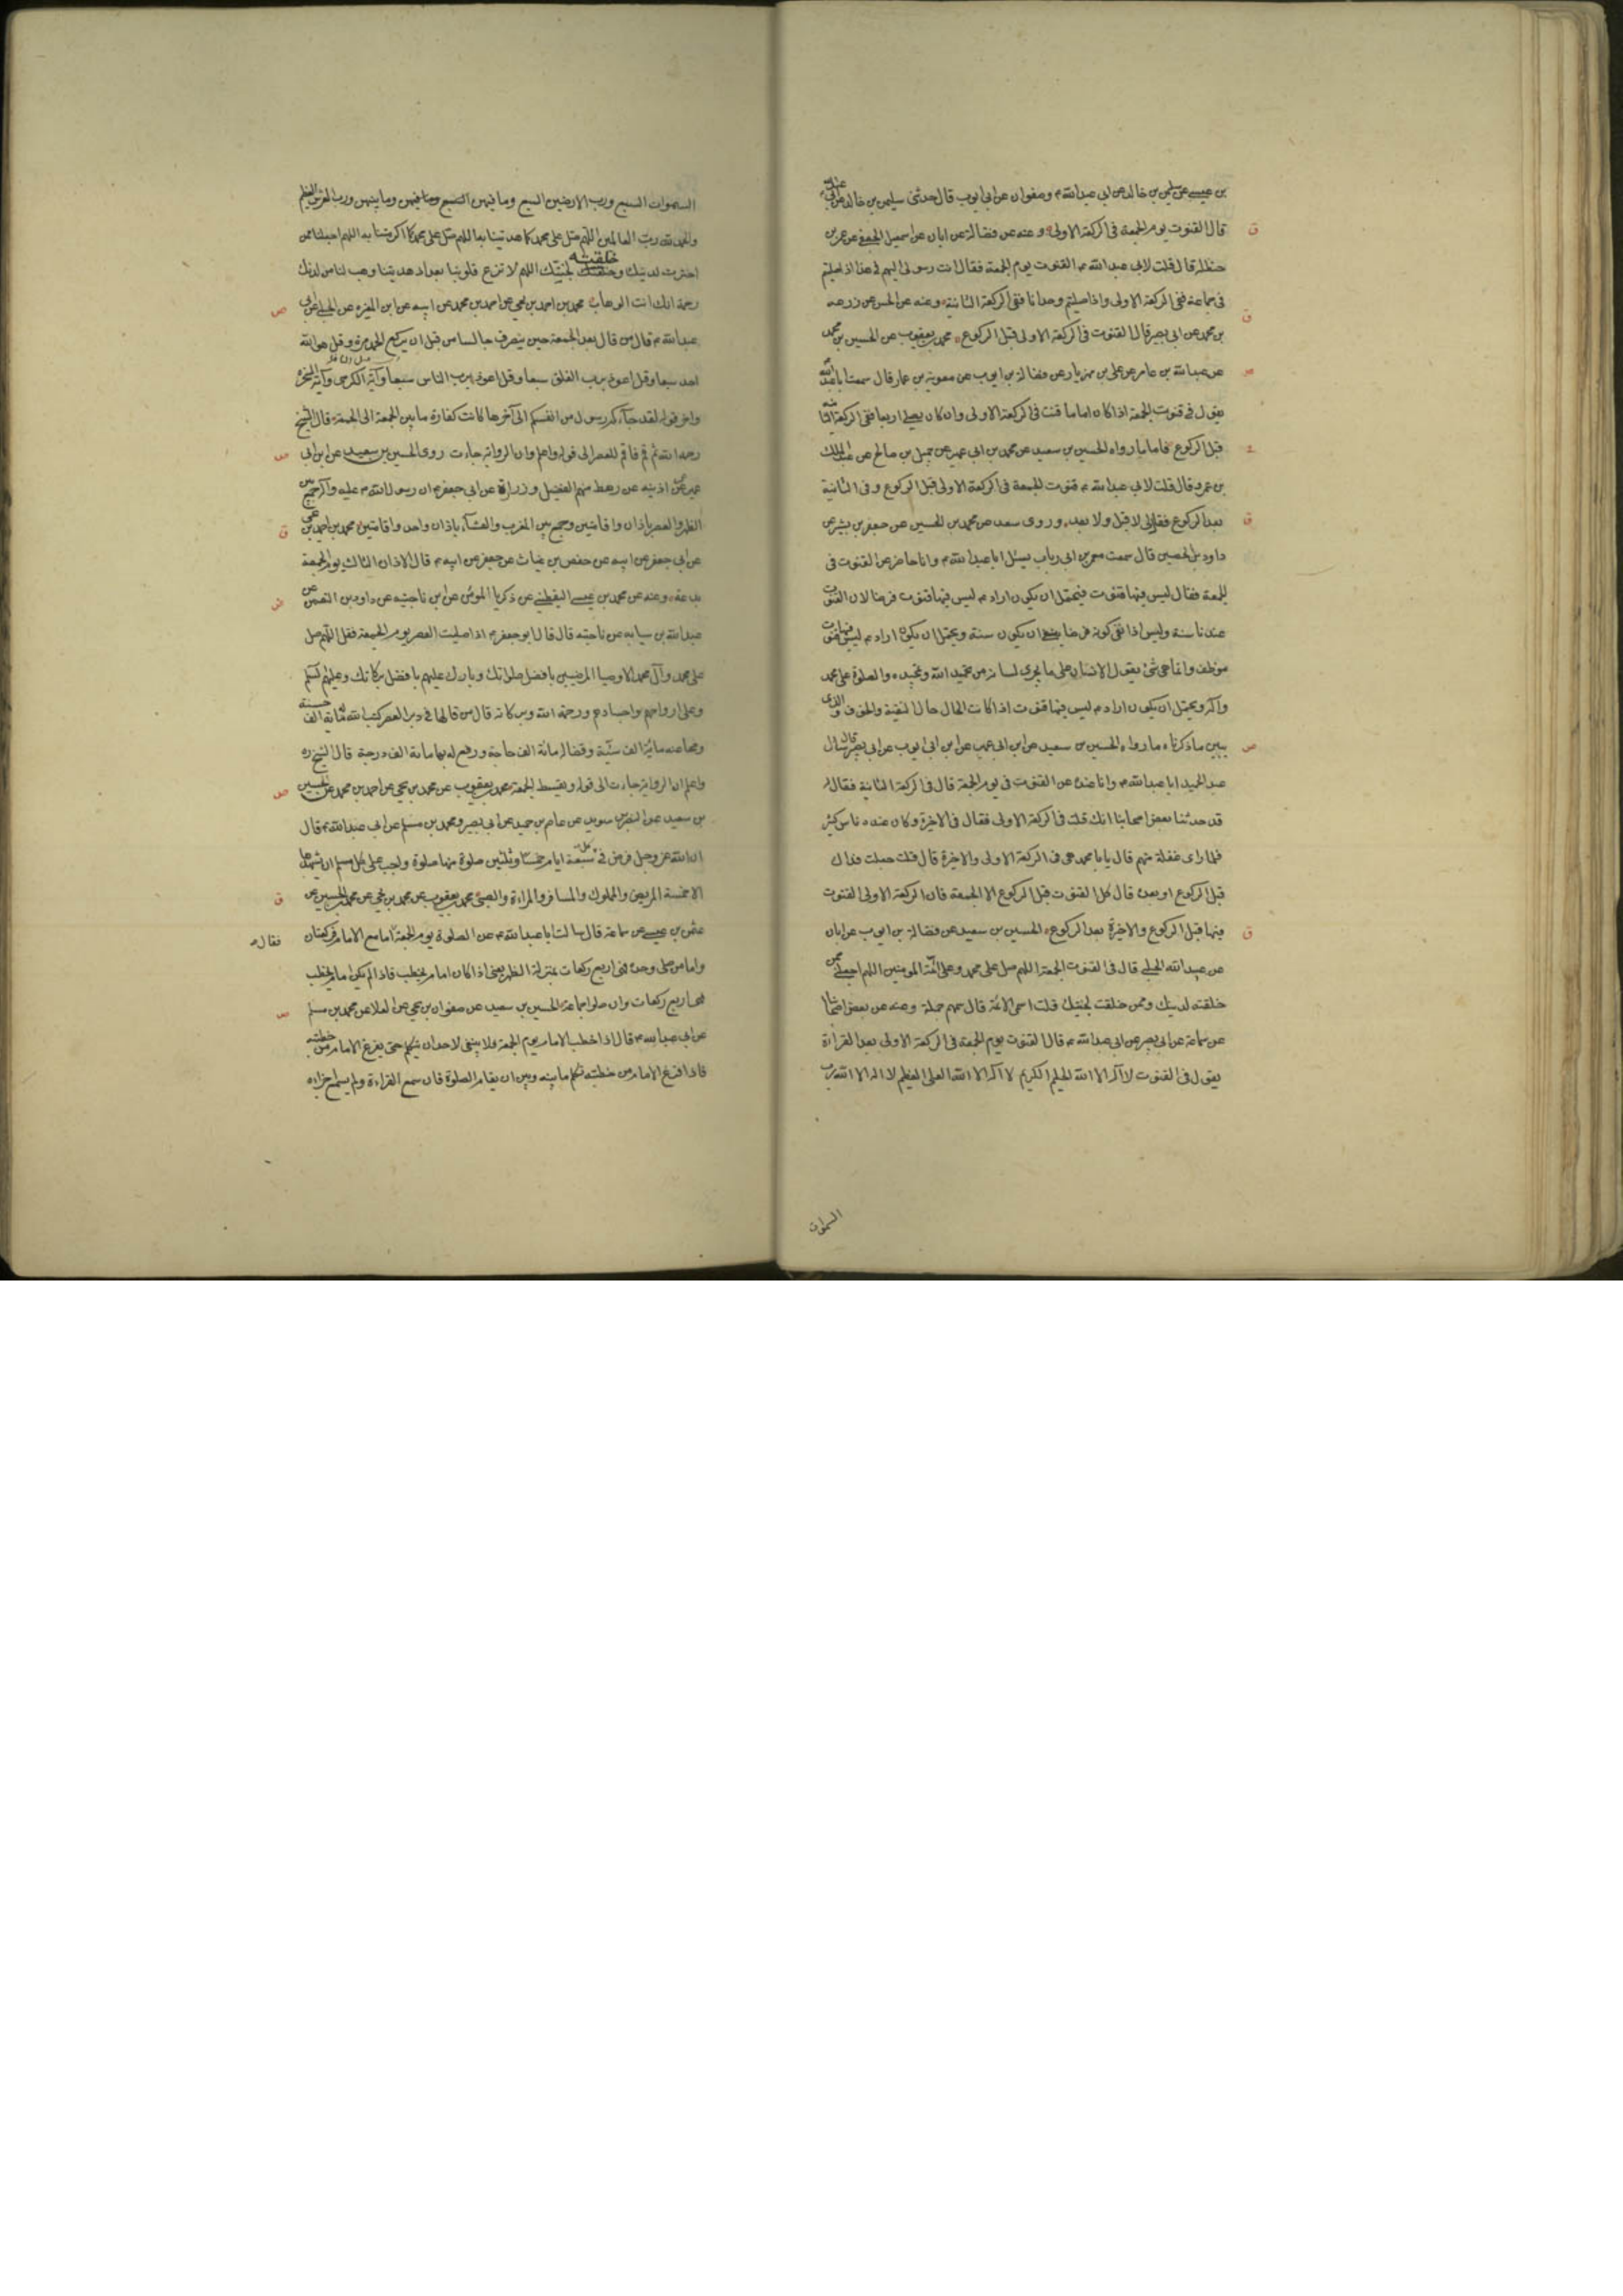 بن عيسى عن سليمن بن خالد عن ابى عبدالله ع وصفوان عن ابى ايوب قال حدثنى سليمن بن خالد عن ابى عبدالله
ق
قال القنوت يوم الجمعة فى الركعة الاولى وعنه عن فضالة عن ابان عن اسمعيل الجعفى عن عمر بن
حنظلة قال قلت لابى عبدالله ع القنوت يوم الجمعة فقال انت رسولى اليهم فى هذا اذا صليتم
فى جماعة ففى الركعة الاولى واذا صليتم وحدانا ففى الركعة الثانية وعنه عن الحسن عن زرعه
ق
بن محمد عن ابى بصير قال القنوت فى الركعة الاولى قبل الركوع محمد بن يعقوب عن الحسين بن محمد
ص
عن عبدالله بن عامر عن على بن مهزيار عن فضالة بن ايوب عن معوية بن عمار قال سمعت ابا عبدالله
يقول فى قنوت الجمعة اذا كان اماما قنت فى الركعة الاولى وان كان يصلى اربعا ففى الركعة الثانية
قبل الركوع فاما ما رواه الحسين بن سعيد عن محمد بن ابى عمير عن جميل بن صالح عن عبدالملك
بن عمرو قال قلت لابى عبدالله ع قنوت الجمعة فى الركعة الاولى قبل الركوع وفى الثانية
ق
بعد الركوع فقال لى لا قبل ولا بعد وروى سعد عن محمد بن الحسين عن جعفر بن بشير عن
داود بن الحصين قال سمعت معمر بن ابى رباب يسئل ابا عبدالله ع وانا حاضر عن القنوت فى
الجمعة فقال ليس فيها قنوت فيحتمل ان يكون اراد ع ليس فيها قنوت فرضا لان القنوت
عندنا سنة وليس اذا نفى كونه فرضا ان يكون سنة ويحتمل ان يكون اراد ع ليس فيها قنوت
موظف وانما هى شئ يقول الانسان على ما يجرى لسانه من تحميد الله وتمجيده والصلوة على محمد
وآله ويحتمل ان يكون اراد ع ليس فيها قنوت اذا كانت الحال حال التقية والخوف والذى
ص
يبين ما ذكرناه ما رواه الحسين بن سعيد عن ابن ابى عمير عن ابن ابى ايوب عن ابى بصير قال سال
عبد الحميد ابا عبدالله ع وانا عنده عن القنوت فى يوم الجمعة قال فى الركعة الثانية فقال له
قد حدثنا بعض اصحابنا انك قلت فى الركعة الاولى فقال فى الاخيرة وكان عنده ناس كثير
فلما راى غفلة منهم قال يا با محمد هى فى الركعة الاولى والاخيرة قال قلت جعلت فداك
قبل الركوع او بعده قال كل القنوت قبل الركوع الا الجمعة فان الركعة الاولى القنوت
ق
فيها قبل الركوع والاخيرة بعد الركوع الحسين بن سعيد عن فضالة بن ايوب عن ابان
عن عبدالله الحلبى قال فى القنوت الجمعة اللهم صل على محمد وعلى ائمة المومنين اللهم اجعلنى ممن
خلقته لدينك وممن خلقت لجنتك قلت اسمى الائمة قال سمهم جملة وعنه عن بعض اصحابنا
عن سماعة عن ابى بصير عن ابى عبدالله ع قال القنوت يوم الجمعة فى الركعة الاولى بعد القراءة
يقول فى القنوت لا اله الا الله الحليم الكريم لا اله الا الله العلى العظيم لا اله الا الله رب
السموات
السموات السبع ورب الارضين السبع وما فيهن وما بينهن ورب العرش العظيم
والحمد لله رب العالمين اللهم صل على محمد كما هديتنا به اللهم صل على محمد كما اكرمتنا به اللهم اجعلنا ممن
اخترت لدينك وخلقته لجنتك اللهم لا تزغ قلوبنا بعد اذ هديتنا وهب لنا من لدنك
ص
رحمة انك انت الوهاب محمد بن احمد بن يحيى عن احمد بن محمد عن ابيه عن ابن المغيره عن الحلبى عن ابى
عبدالله ع قال من قال بعد الجمعة حين ينصرف جالسا من قبل ان يركع الحمد مرة وقل هو الله
احد سبعا وقل اعوذ برب الفلق سبعا وقل اعوذ برب الناس سبعا وآية الكرسى وآية السخرة
واخر قوله لقد جاءكم رسول من انفسكم الى آخرها كانت كفارة ما بين الجمعة الى الجمعة قال الشيخ
ص
رحمه الله ثم قم فاقم للعصر الى قوله واعلم وان الرواية جاءت روى الحسين بن سعيد عن ابن ابى
عمير عن اذينه عن رهط منهم الفضيل وزرارة عن ابى جعفر ع ان رسول الله ص عليه وآله جمع بين
ق
الظهر والعصر باذان واقامتين وجمع بين المغرب والعشآء باذان واحد واقامتين محمد بن احمد بن يحيى
عن ابى جعفر عن ابيه عن حفص بن غياث عن جعفر عن ابيه ع قال الاذان الثالث يوم الجمعة
بدعة وعنه عن محمد بن عيسى اليقطينى عن زكريا المومن عن ابن ناجيه عن داود بن النعمن عن
عبدالله بن سيابه عن ناجيه قال قال ابو جعفر ع اذا صليت العصر يوم الجمعة فقل اللهم صل
على محمد وآل محمد الاوصيا المرضيين بافضل صلواتك وبارك عليهم بافضل بركاتك وعليهم السلم
وعلى ارواحهم واجسادهم ورحمة الله وبركاته قال من قالها فى دبر العصر كتب الله له ماية الف حسنة
ومحا عنه مائة الف سيئة وقضا له مائة الف حاجة ورفع له بها ماية الف درجة قال الشيخ ره
ص
واعلم ان الرواية جاءت الى قوله ويقسط الجمعة محمد بن يعقوب عن محمد بن يحيى عن احمد بن محمد عن الحسين
بن سعيد عن النضر بن سويد عن عاصم بن حميد عن ابى بصير ومحمد بن مسلم عن ابى عبدالله ع قال
ان الله عز وجل فرض فى كل سبعة ايام خمسا وثلثين صلوة منها صلوة واجب على كل مسلم ان يشهدها
ق
الا خمسة المريض والمملوك والمسافر والمراءة والصبى محمد بن يعقوب عن محمد بن يحيى عن محمد بن الحسين عن
عثمن بن عيسى عن سماعة قال سالت ابا عبدالله ع عن الصلوة يوم الجمعة اما مع الامام فركعتان
فقال
واما من صلى وحده فهى اربع ركعات بمنزلة الظهر يعنى اذا كان امام يخطب فاذا لم يكن امام يخطب
ص
فهى اربع ركعات وان صلوا جماعة الحسين بن سعيد عن صفوان بن يحيى عن العلا عن محمد بن مسلم
عن ابى عبدالله ع قال اذا خطب الامام يوم الجمعة فلا ينبغى لاحد ان يتكلم حتى يفرغ الامام من خطبته
فاذا فرغ الامام من خطبته تكلم ما بينه وبين ان يقام الصلوة فان سمع القراءة ولم يسمع اجزاه